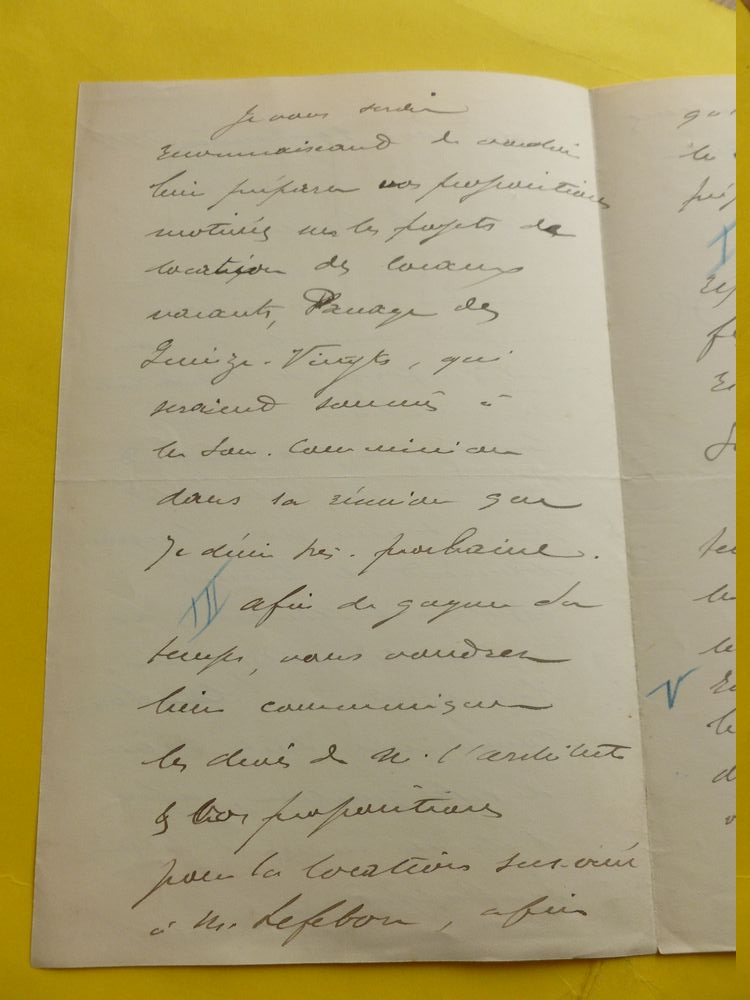 Je vous serai
reconnaissant de vouloir
bien préparer vos propositions
motivées sur les projets de
location des locaux
vacants, Passage des
Quinze-Vingts, qui
seraient soumis à
la Sou. Commission
dans sa réunion que
je désire très prochaine.
III afin de gagner du
temps, vous voudrez
bien communiquer
les devis de M. l'architecte
& vos propositions
pour la location susvisée
à M. Lefebvre, afin
V